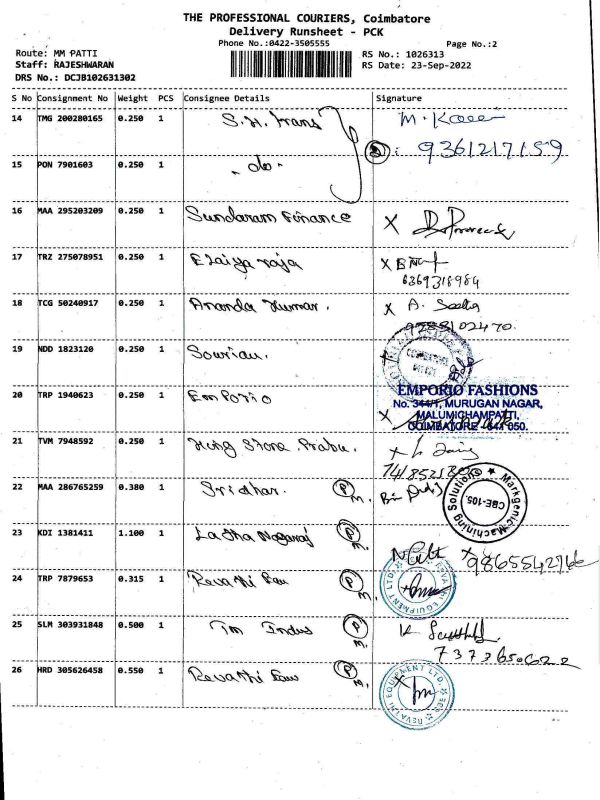 THE PROFESSIONAL COURIERS, Coimbatore
Delivery Runsheet - PCK
Phone No.:0422-3505555
Page No.:2
Route: MM PATTI
Staff: RAJESHWARAN
DRS No.: DCJB102631302
RS No.: 1026313
RS Date: 23-Sep-2022
S No Consignment No Weight PCS Consignee Details Signature
14 TMG 200280165 0.250 1 S.H. trans M.
9361217159
15 PON 7901603 0.250 1 - do -
16 MAA 295203209 0.250 1 Sundaram Finance X
17 TRZ 275078951 0.250 1 Elaiya raja X
6369318984
18 TCG 50240917 0.250 1 Ananda Kumar. X A.
9788102470.
19 NDD 1823120 0.250 1 Souriau.
20 TRP 1940623 0.250 1 Emporio
EMPORIO FASHIONS
No. 344/1, MURUGAN NAGAR,
MALUMICHAMPATTI,
COIMBATORE - 641 050.
21 TVM 7948592 0.250 1 Prabu.
22 MAA 286765259 0.380 1 Sridhar. P M.
Markgenic Machining Solutions
CBE-105.
23 KDI 1381411 1.100 1 Latha Nagaraj P M.
24 TRP 7879653 0.315 1 Revathi P M.
REVATHI EQUIPMENT LTD.
25 SLM 303931848 0.500 1 Tm Indus P M.
26 HRD 305626458 0.550 1 Revathi P M.
REVATHI EQUIPMENT LTD.